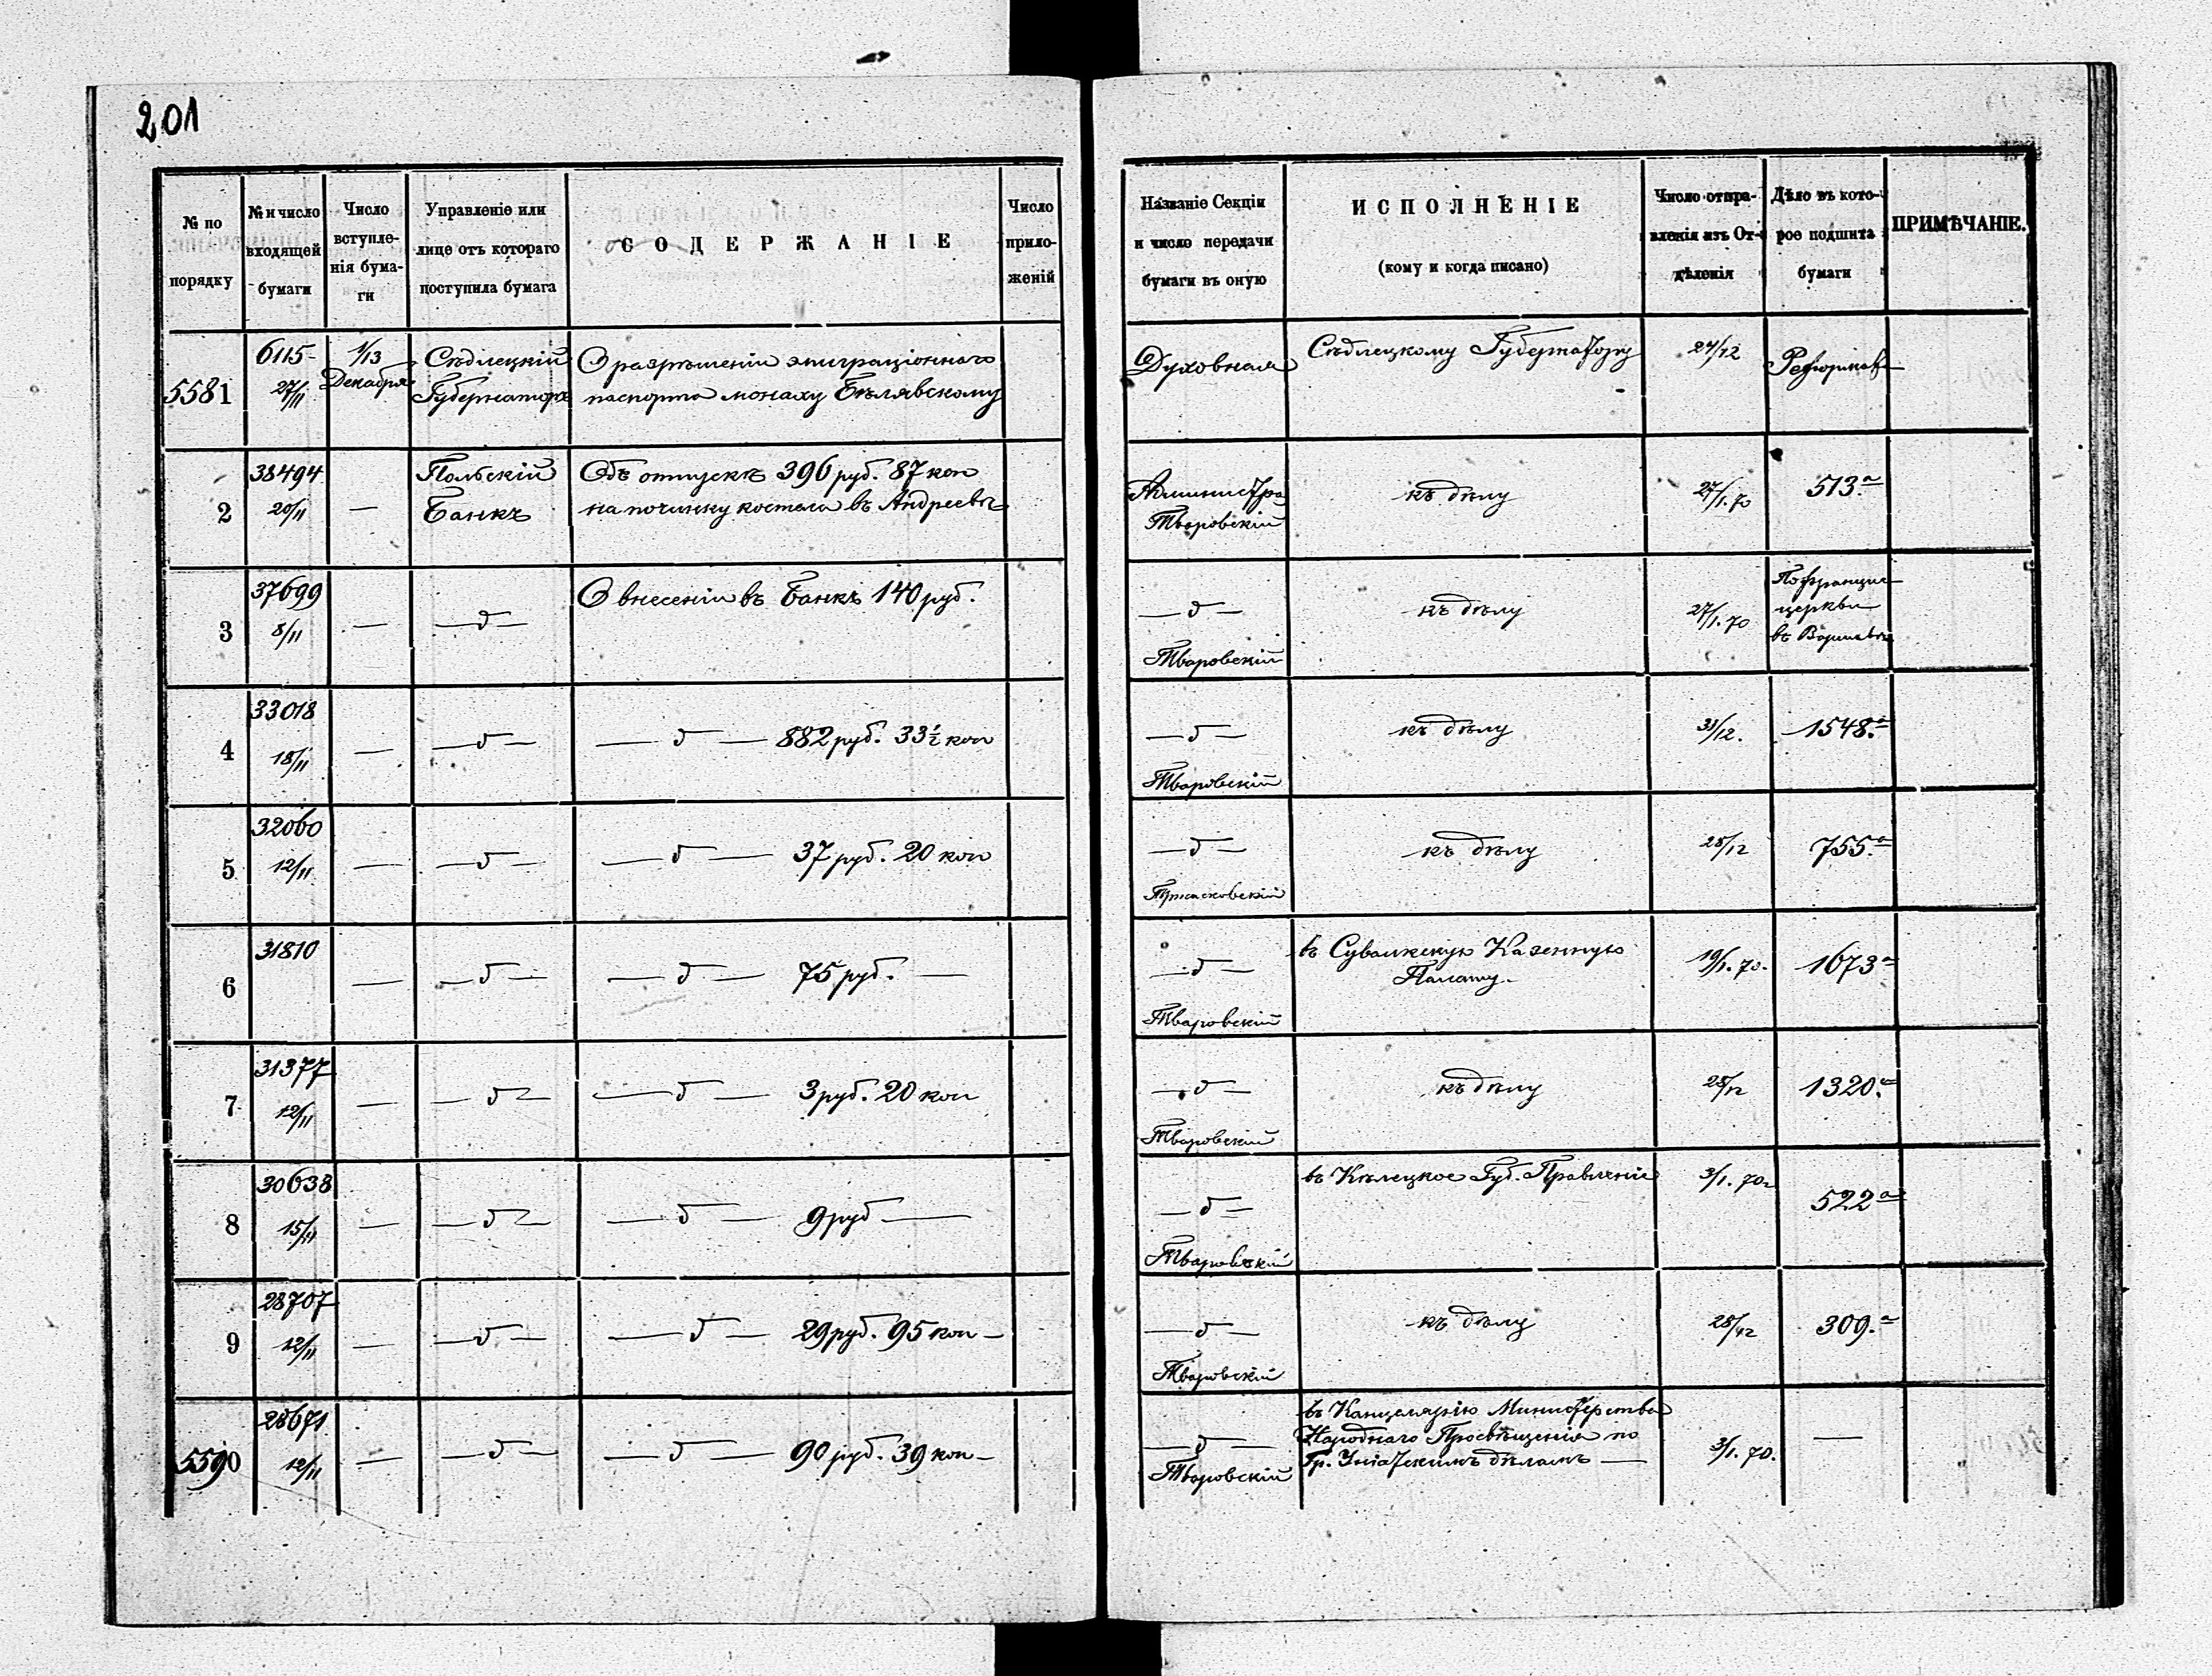 201
№ по порядку
№ и число входящей бумаги
Число вступле-нія бума-ги
Управленіе или лице отъ котораго поступила бумага
СОДЕРЖАНІЕ
Число прило-женій
Названіе Секціи и число передачи бумаги въ оную
ИСПОЛНЕНІЕ
(кому и когда писано)
Число отпра-вленія изъ От-дѣленія
Дѣло въ кото-рое подшита бумаги
ПРИМѢЧАНІЕ.
5581 6115 27/11 1/13 Декабря Сѣдлецкій Губернаторъ О разрѣшеніи эмиграціоннаго паспорта монаху Бѣлявскому Духовная Сѣдлецкому Губернатору 24/12
2 38494 20/11 — Польскій Банкъ Объ отпускѣ 396 руб. 87 коп на починку костела въ Андреевѣ Тваровскій къ дѣлу 27/1.70 513.а
3 37699 8/11 — —д— О внесеніи въ Банкъ 140 руб. —д— Тваровскій къ дѣлу 27/1.70 церкви въ Варшавѣ
4 33018 18/11 — —д— —д— 882 руб. 33½ коп —д— Тваровскій къ дѣлу 31/12. 1548.а
5 32060 12/11 — —д— —д— 37 руб. 20 коп —д— къ дѣлу 28/12 755.а
6 31810 — —д— —д— 75 руб. — —д— Тваровскій въ Сувалкскую Казенную Палату. 19/1.70. 1673а
7 31377 12/11 — —д— —д— 3 руб. 20 коп —д— Тваровскій къ дѣлу 28/12 1320.а
8 30638 15/11 — —д— —д— 9 руб — —д— Тваровскій въ Кѣлецкое Губ. Правленіе 3/1.70г 522а
9 28707 12/11 — —д— —д— 29 руб. 95 коп — —д— Тваровскій къ дѣлу 28/12 309.а
5590 28671 12/11 — —д— —д— 90 руб. 39 коп — —д— Тваровскій въ Канцелярію Министерства Народнаго Просвѣщенія по Гр. Уніатскимъ дѣламъ — 3/1.70. —